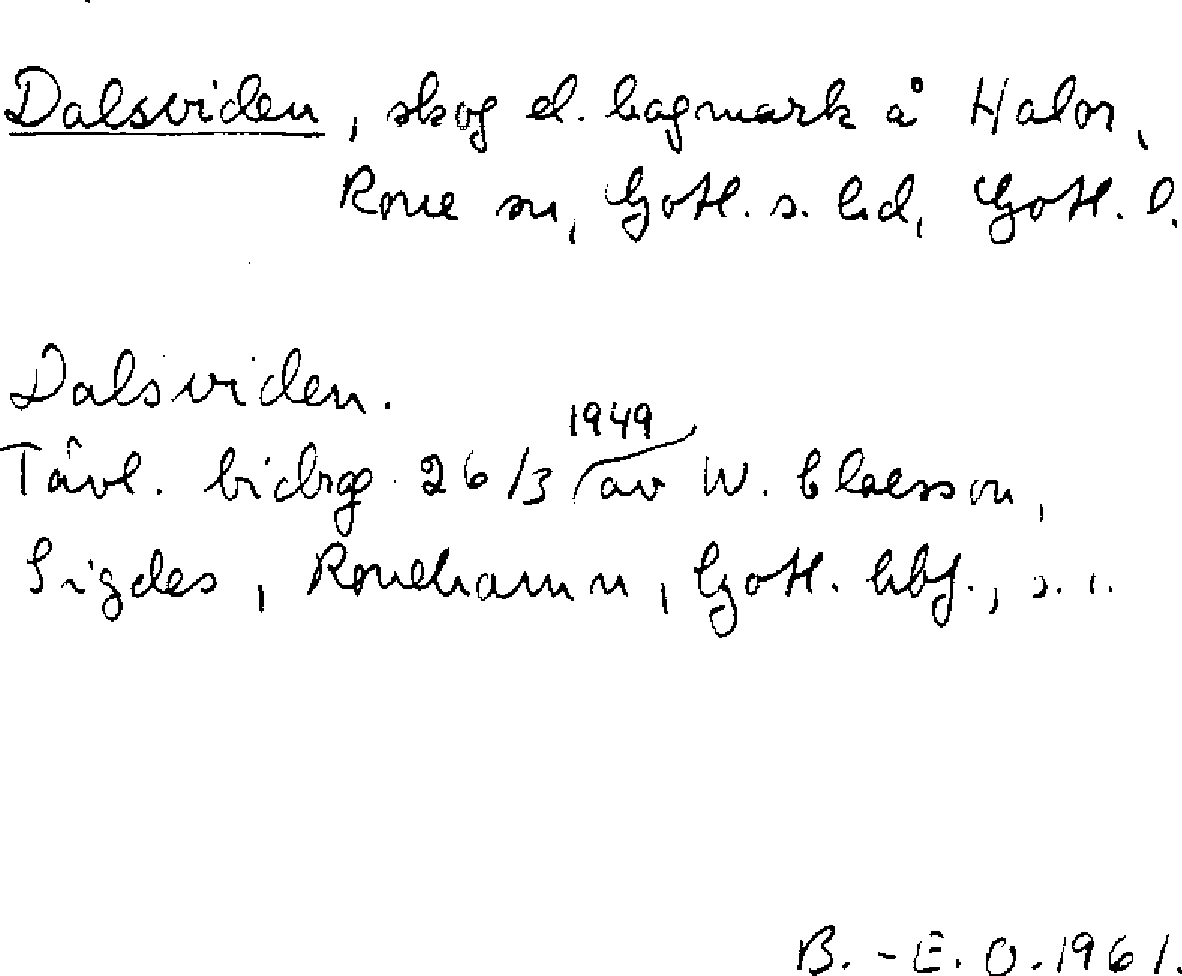 Dalsviden, skog el. hagmark å Halor,
Rone sn, Gotl. s. hd, Gotl. l.
Dalsviden.
Tävl. bidrag 26/3 1949 av W. Claesson,
Sigdes, Ronehamn, Gotl. hbf., s. 1.
B.-E. O. 1961.